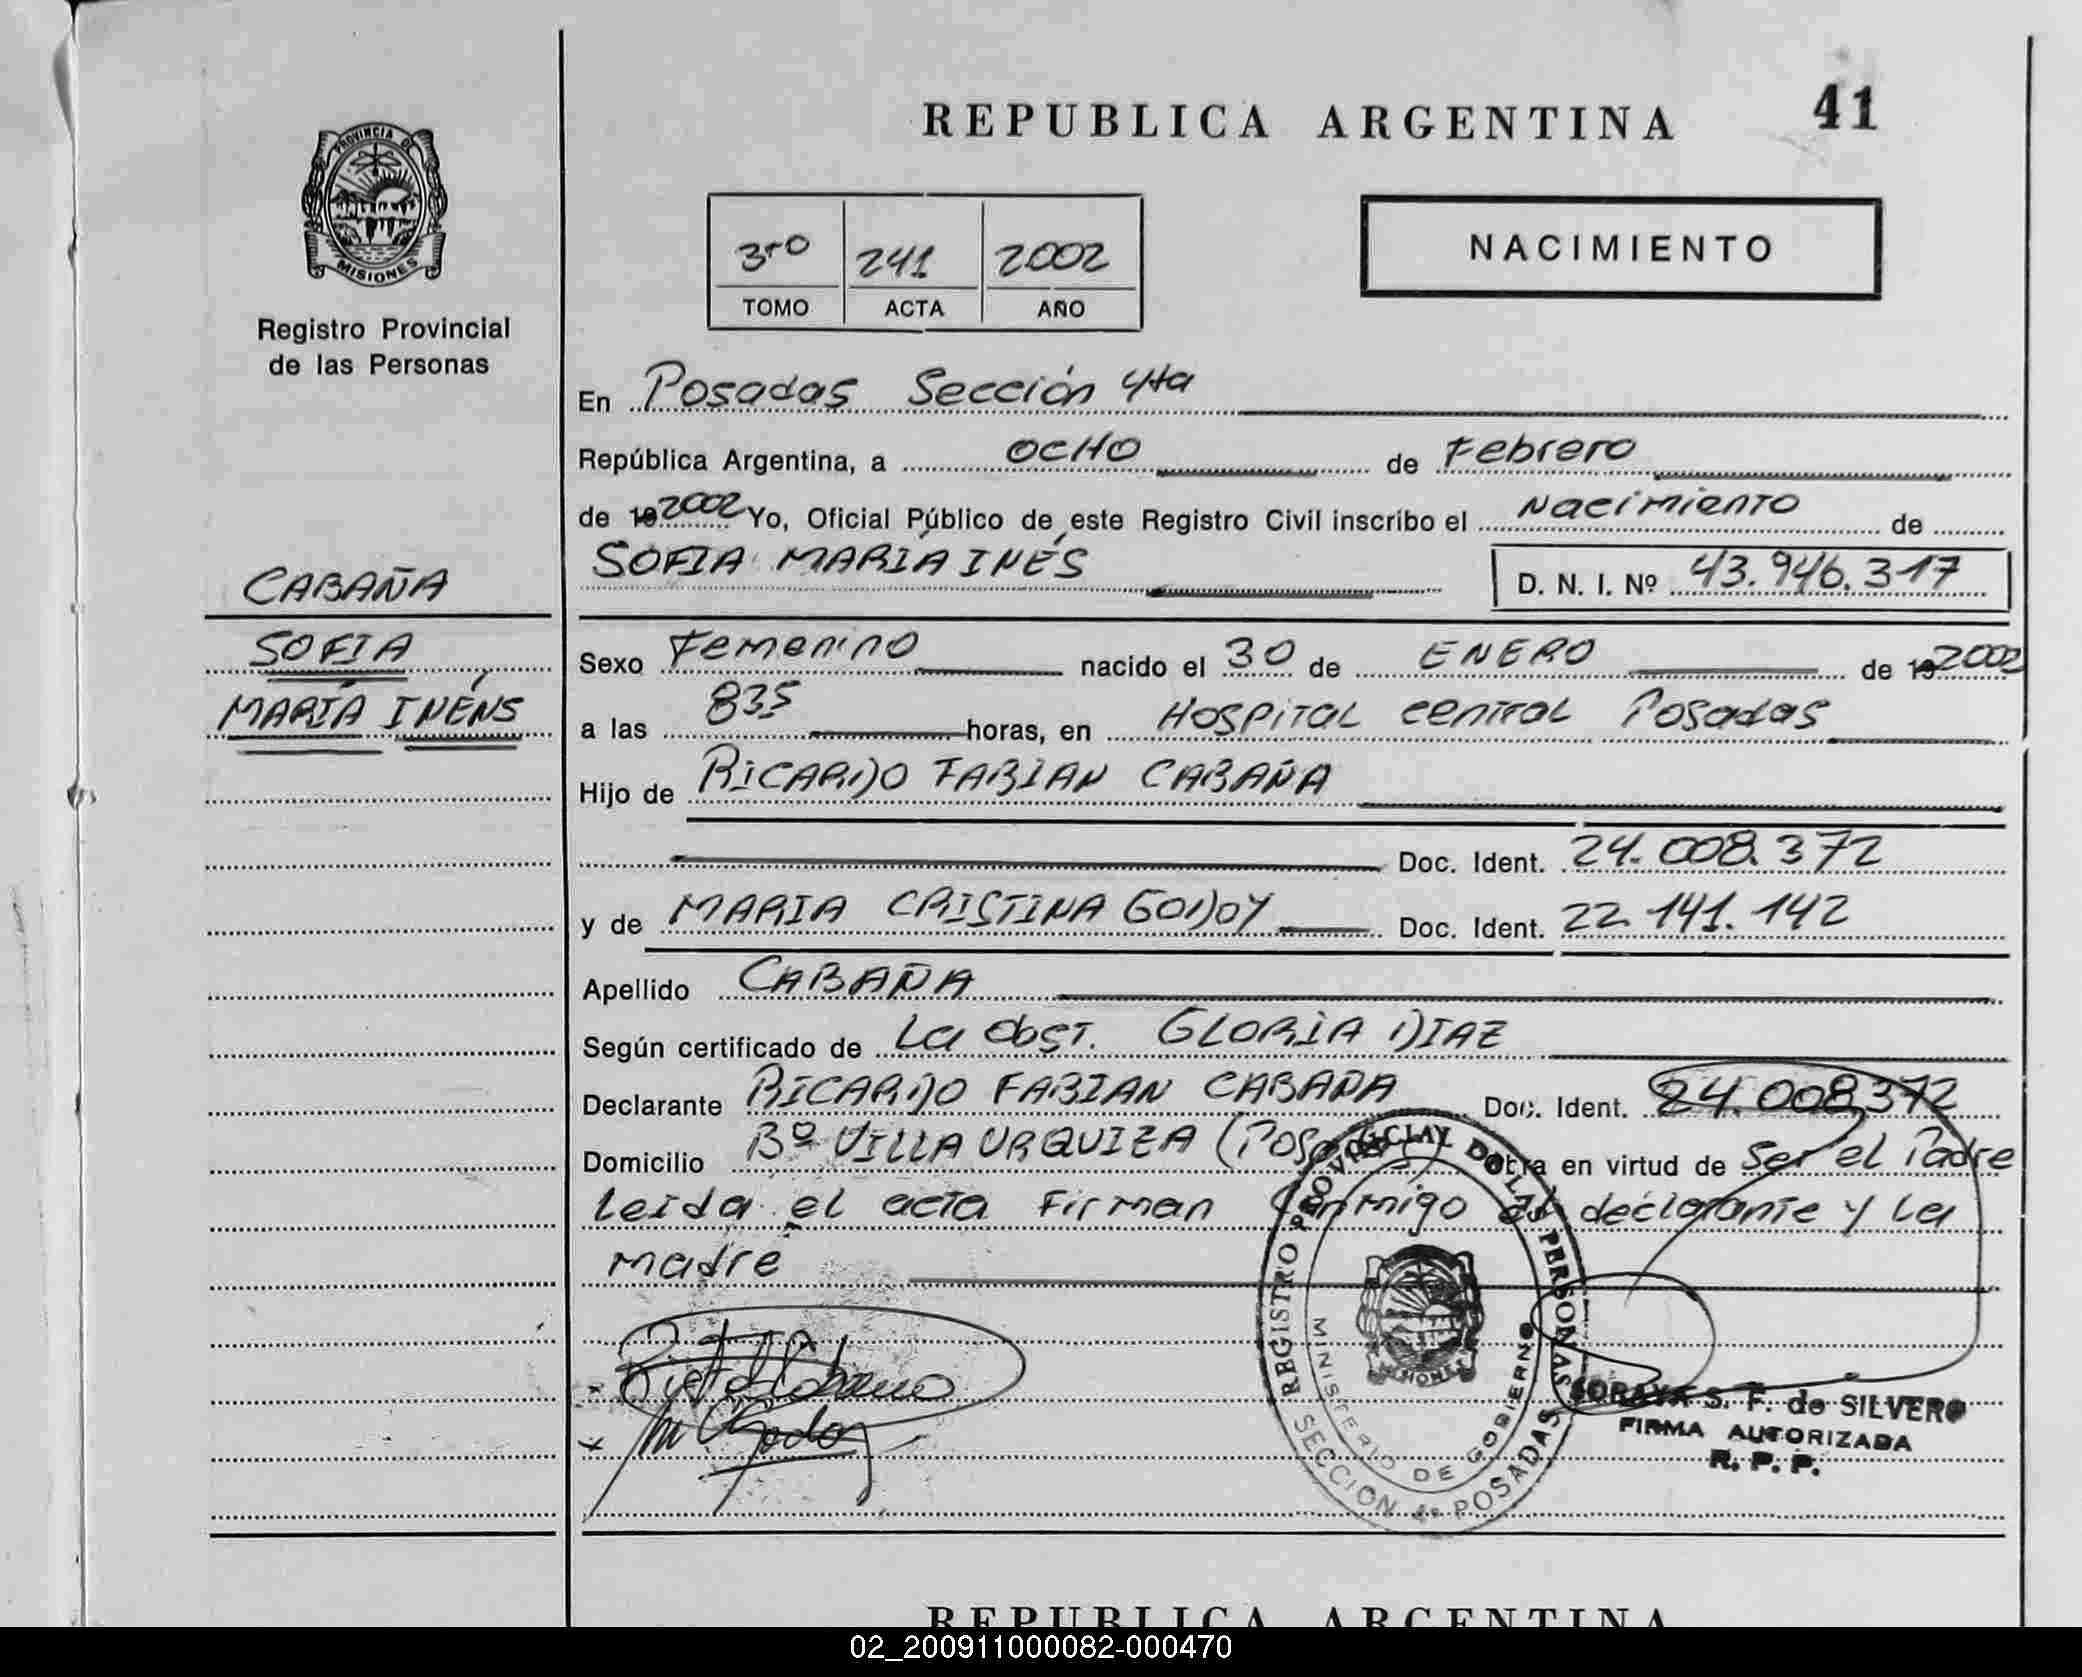 REPUBLICA ARGENTINA 41
PROVINCIA DE
MISIONES
Registro Provincial
de las Personas
3ro 241 2002
TOMO ACTA AÑO
NACIMIENTO
En Posadas Sección 4ta
República Argentina, a OCHO de Febrero
de 19 2002 Yo, Oficial Público de este Registro Civil inscribo el Nacimiento de
SOFIA MARÍA INÉS D. N. I. Nº 43.946.317
CABAÑA
SOFIA
MARÍA INÉNS
Sexo Femenino nacido el 30 de ENERO de 19 2002
a las 835 horas, en Hospital central Posadas
Hijo de RICARDO FABIAN CABAÑA
Doc. Ident. 24.008.372
y de MARIA CRISTINA GODOY Doc. Ident. 22.141.142
Apellido CABAÑA
Según certificado de La Obst. GLORIA DIAZ
Declarante RICARDO FABIAN CABAÑA Doc. Ident. 24.008.372
Domicilio Bº VILLA URQUIZA (Pos Obra en virtud de Ser el Padre
Leida el acta Firman conmigo el declarante y La
madre
REGISTRO PROVINCIAL DE LAS PERSONAS
MINISTERIO DE GOBIERNO
MISIONES
SECCION 4ª POSADAS
SORAYA S. F. de SILVERO
FIRMA AUTORIZADA
R. P. P.
REPUBLICA ARGENTINA
02_200911000082-000470